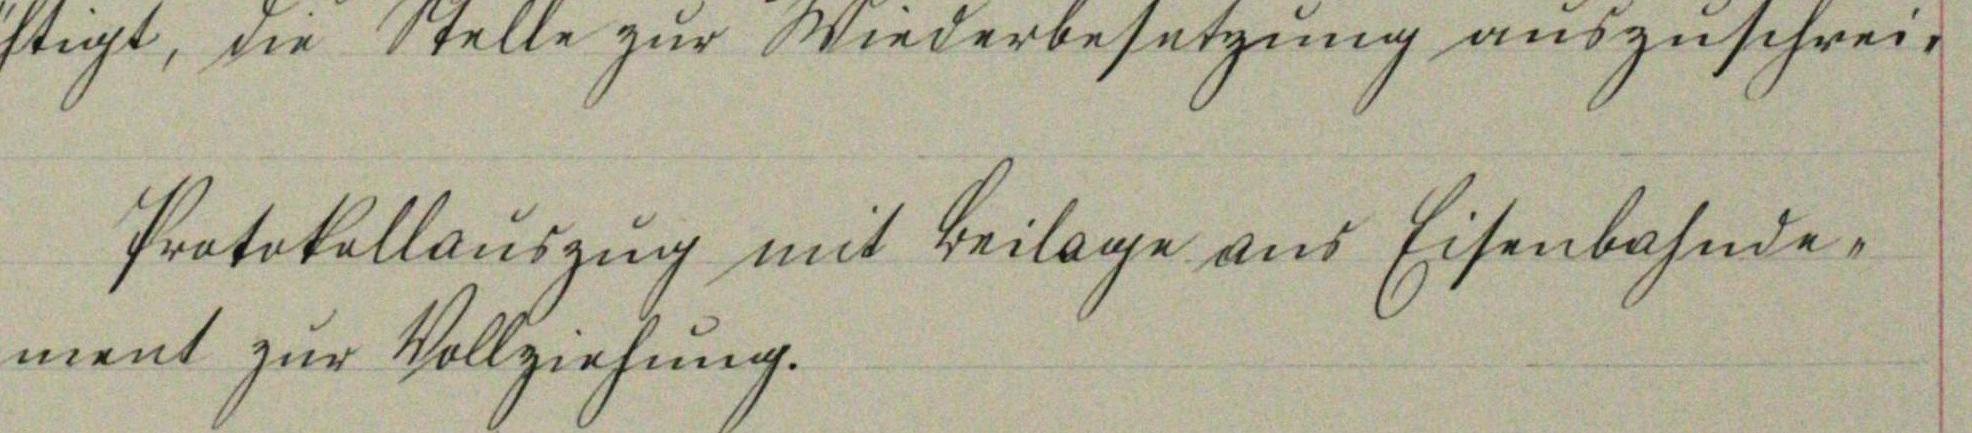 ichtigt, die Stelle zur Wiederbesetzung auszuschrei-
Protokollauszug mit Beilage ans Eisenbahnde-
ment zur Vollziehung.